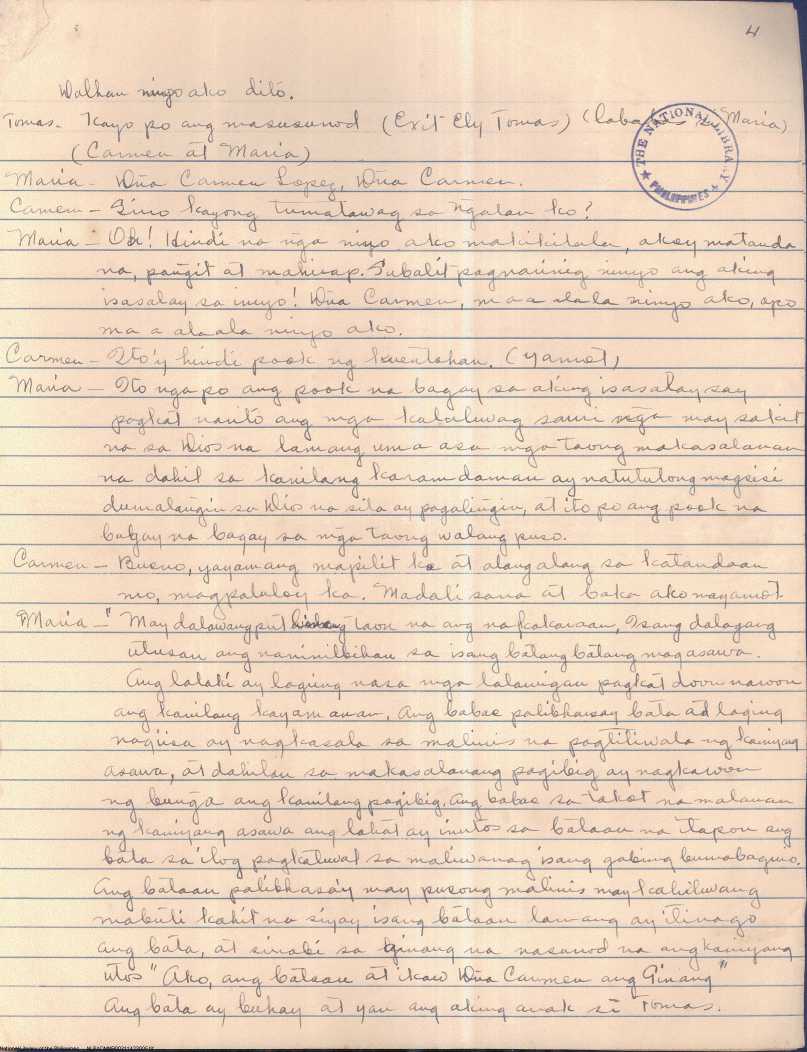 4
ninyo ako dito.
Tomas - Kayo po ang masusunod (Exit Ely Tomas) Maria)
(Carmen at Maria)
THE NATIONAL LIBRARY PHILIPPINES
Maria - Dña Carmen Lopez, Dña Carmen.
Carmen - Sino kayong tumatawag sa ngalan ko?
Maria - Oh! Hindi na nga ninyo ako makikilala, akoy matanda
na, pangit at mahirap. Subalit pagnarinig ninyo ang aking
isasalay sa inyo! Dña Carmen, ma a alala ninyo ako, opo
ma a alaala ninyo ako.
Carmen - Ito'y hindi pook ng kwentohan. (yamot)
Maria - Ito nga po ang pook na bagay sa aking isasalaysay
pagkat narito ang mga kahiluwag mga may sakit
na sa Dios na lamang uma asa mga taong makasalanan
na dahil sa kanilang karamdaman ay natututong magsisi
dumalangin sa Dios na sila ay pagalingin, at ito po ang pook na
bagay sa mga taong walang puso.
Carmen - Bueno, yayamang mapilit ka at alangalang sa katandaan
mo, magpatuloy ka. Madali sana at baka ako mayamot.
Maria - "May dalawangput taon na ang nakakaraan, Isang dalagang
utusan ang naninilbihan sa isang batang batang magasawa.
Ang lalaki ay laging nasa mga lalawigan pagkat doon naroon
ang kanilang kayamanan. Ang babae palibhasay bata at laging
nagiisa ay nagkasala sa malinis na pagtitiwala ng kaniyang
asawa, at dahilan sa makasalanang pagibig ay nagkaroon
ng bunga ang kanilang pagibig. Ang babae sa takot na malaman
ng kaniyang asawa ang lahat ay inutos sa bataan na itapon ang
bata sa ilog pagkaluwal sa maliwanag isang gabing bumabagyo.
Ang bataan palibhasa'y may pusong malinis may kahiluwang
mabuti kahit na siyay isang bataan lamang ay itinago
ang bata, at sinabi sa ginang na nasunod na ang kaniyang
utos "Ako, ang bataan at ikaw Dña Carmen ang Ginang"
Ang bata ay buhay at yan ang aking anak si Tomas.